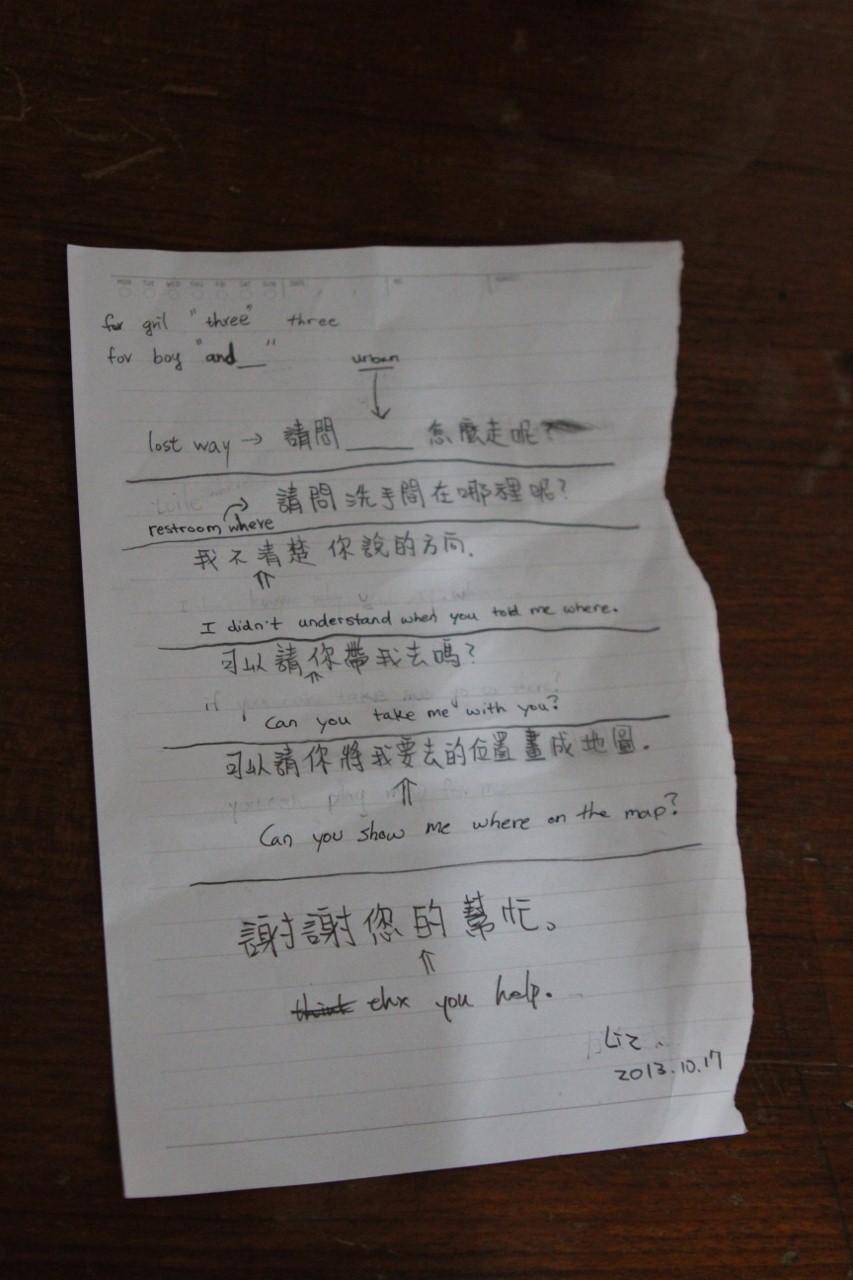 for gril "three" three
for boy "and__"
urban
lost way → 請問____怎麼走呢?
請問洗手間在哪裡呢?
restroom where
我不清楚你說的方向.
I didn't understand when you told me where.
可以請你帶我去嗎?
Can you take me with you?
可以請你將我要去的位置畫成地圖.
Can you show me where on the map?
謝謝您的幫忙。
think thx you help.
Liz
2013.10.17